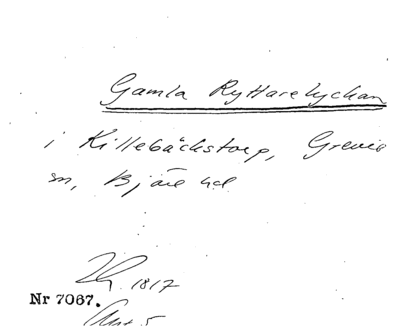 Gamla Ryttarelyckan
i Killebäckstorp, Grevie
sn, Bjäre hd
1817
Nr 7067.